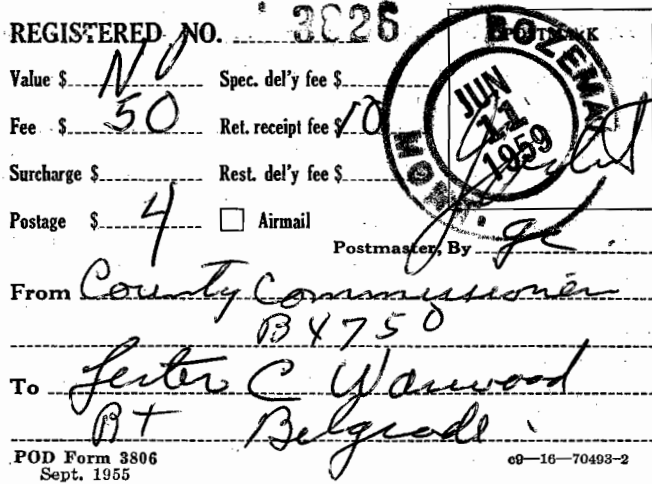 REGISTERED NO. 3826
POSTMARK
BOZEMAN MONT.
JUN
11
1959
Value $ NV Spec. del'y fee $
Fee $ 50 Ret. receipt fee $ 10
Surcharge $ Rest. del'y fee $
Postage $ 4 ☐ Airmail
Postmaster, By
From County Commissioner
BX 750
To Lester C
Belgrade
POD Form 3806 c9—16—70493-2
Sept. 1955